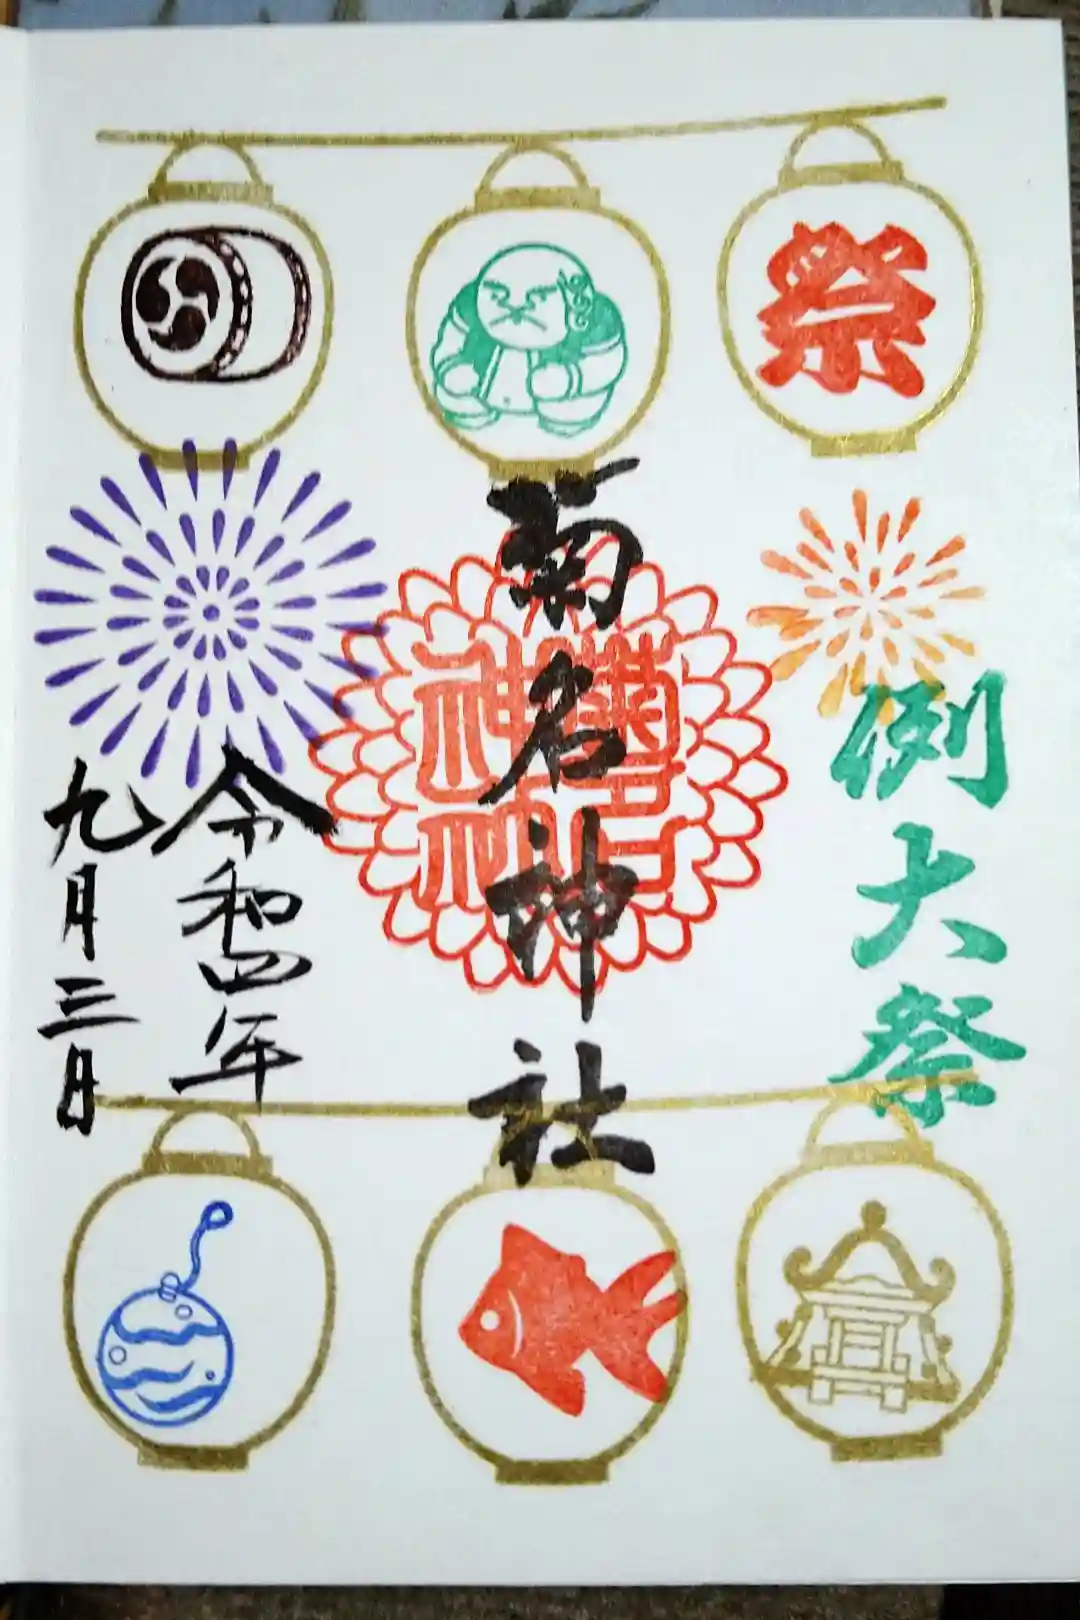 祭
例大祭
菊名神社
菊名
神社
令和四年
九月三日